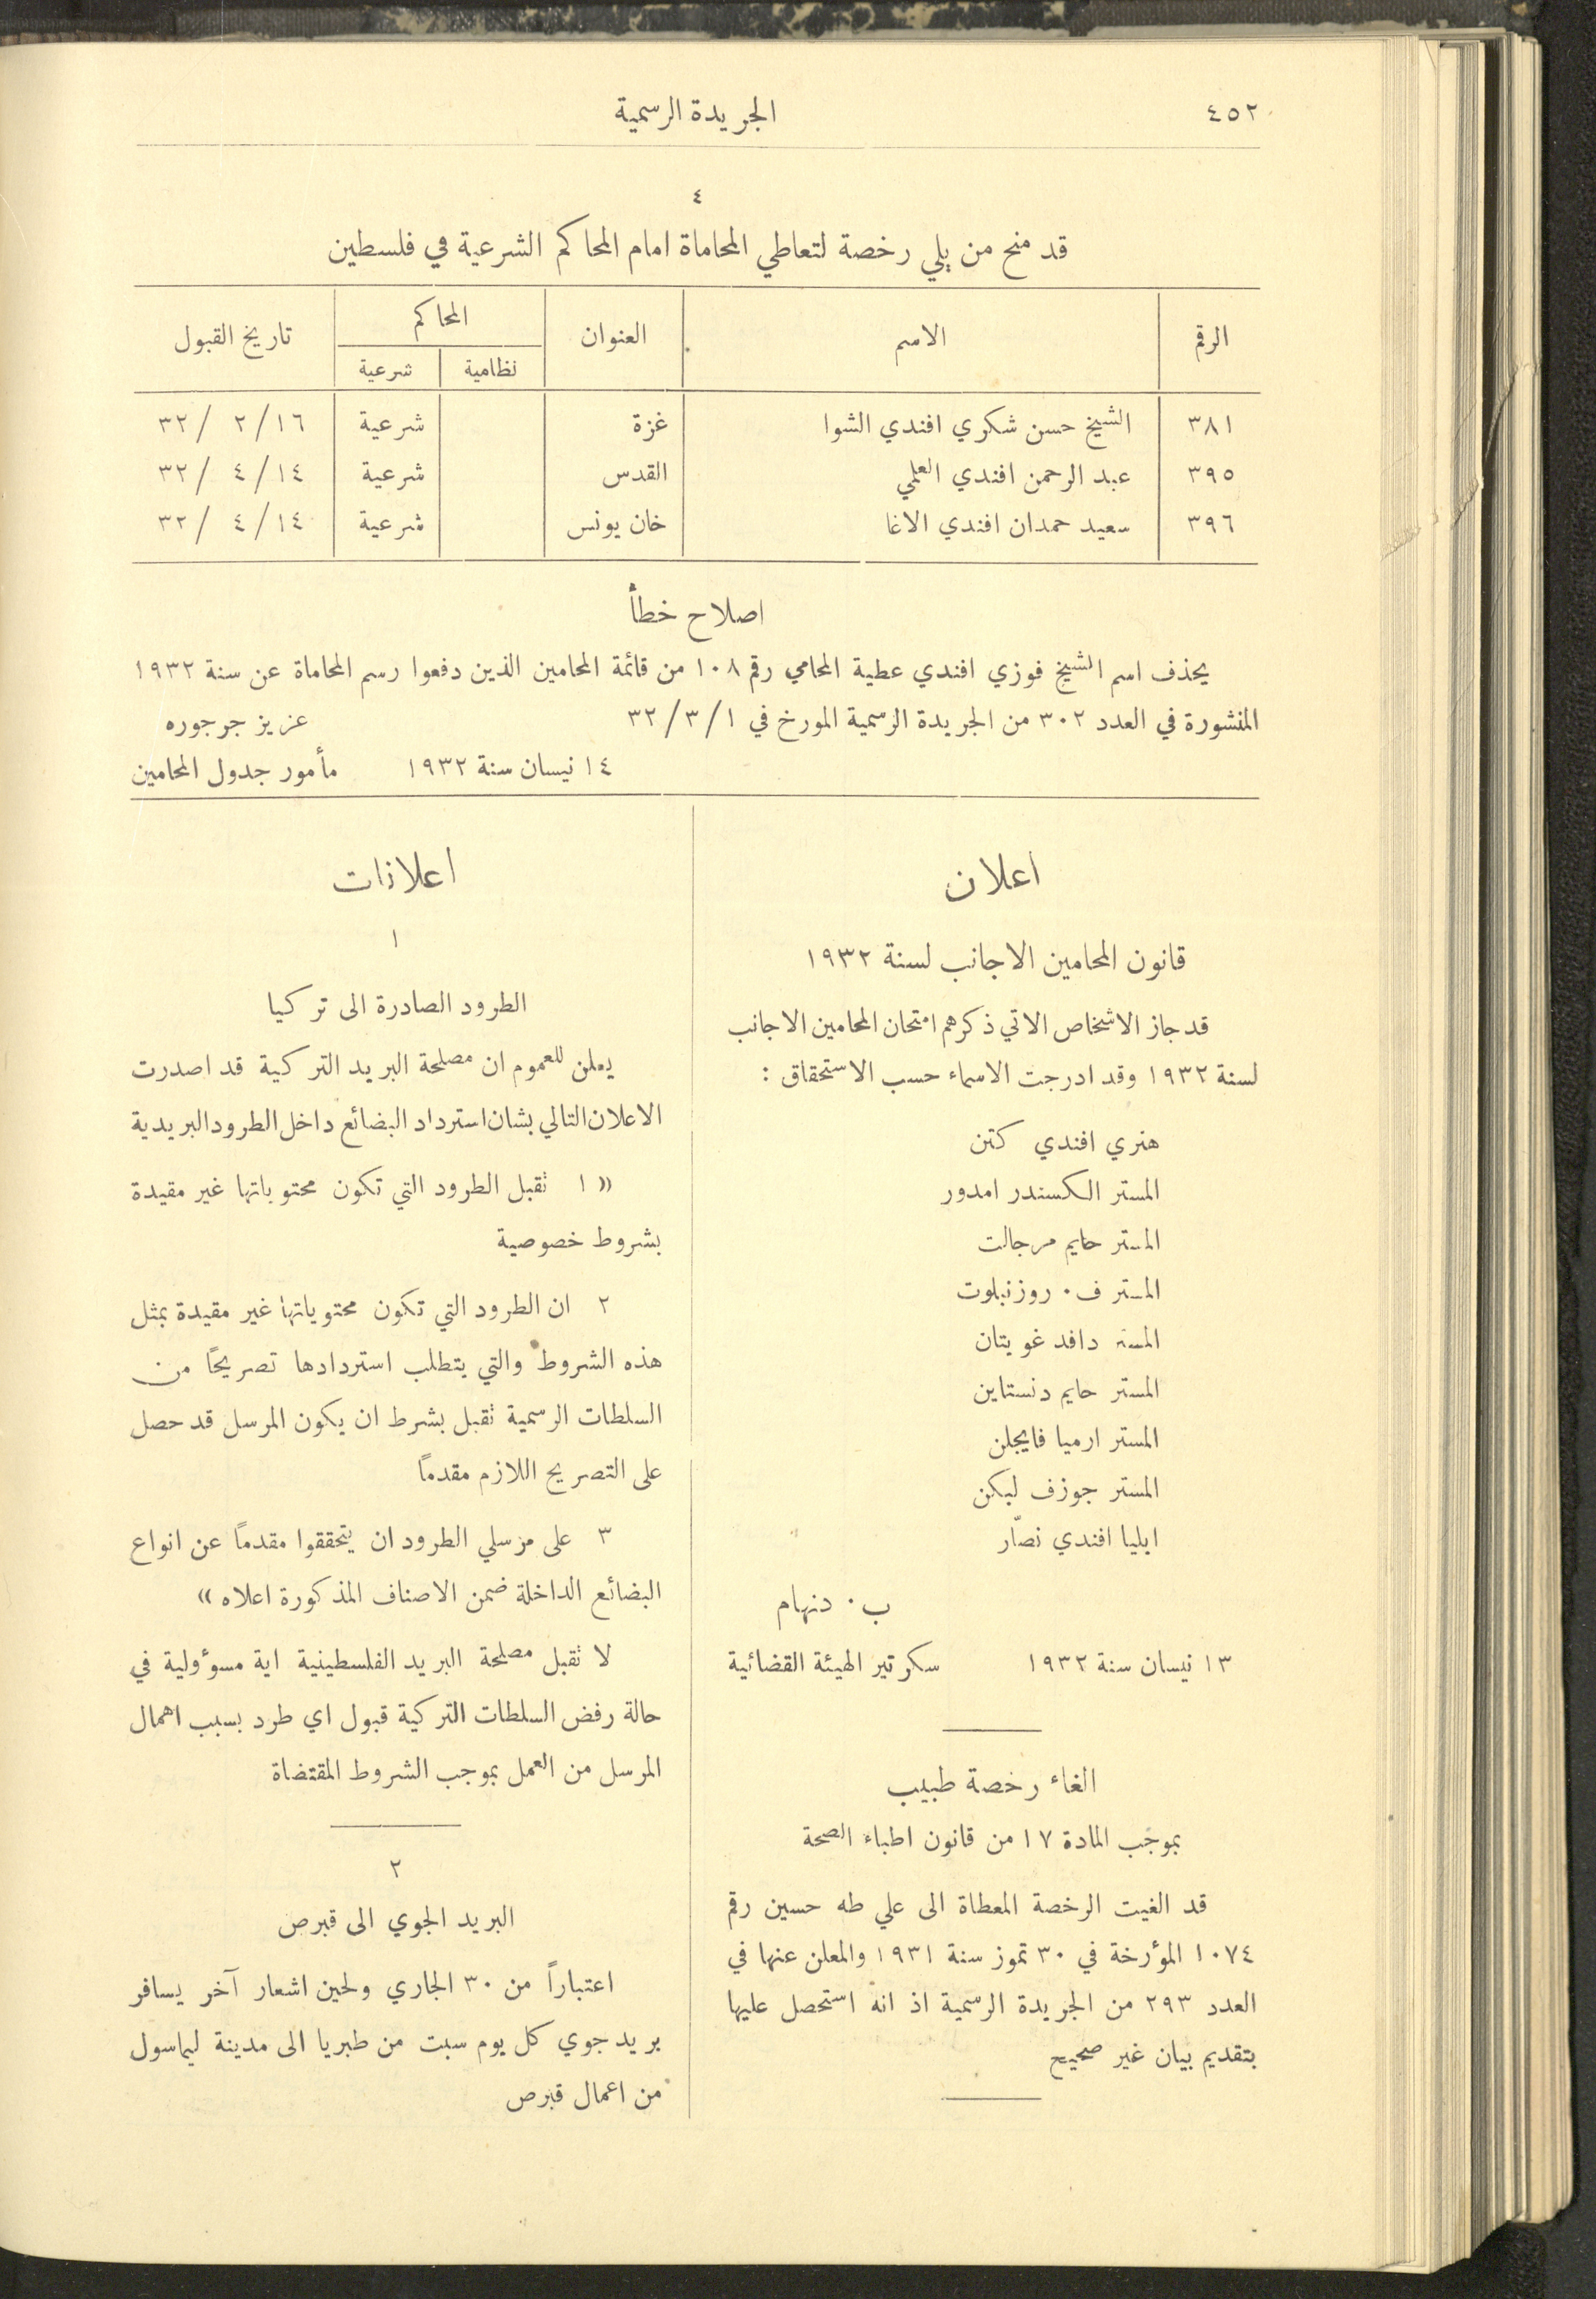 ٤٥٢
الجريدة الرسمية
٤
قد منح من يلي رخصة لتعاطي المحاماة امام المحاكم الشرعية في فلسطين
الرقم الاسم العنوان المحاكم تاريخ القبول
نظامية شرعية
٣٨١ الشيخ حسن شكري افندي الشوا غزة شرعية ١٦/ ٢ /٣٢
٣٩٥ عبد الرحمن افندي العلمي القدس شرعية ١٤/ ٤ /٣٢
٣٩٦ سعيد حمدان افندي الاغا خان يونس شرعية ١٤/ ٤ /٣٢
اصلاح خطأ
يحذف اسم الشيخ فوزي افندي عطية المحامي رقم ١٠٨ من قائمة المحامين الذين دفعوا رسم المحاماة عن سنة ١٩٣٢
المنشورة في العدد ٣٠٢ من الجريدة الرسمية المورخ في ١/٣/٣٢
عزيز جرجوره
١٤ نيسان سنة ١٩٣٢ مأمور جدول المحامين
اعلان
قانون المحامين الاجانب لسنة ١٩٣٢
قد جاز الاشخاص الاتي ذكرهم امتحان المحامين الاجانب
لسنة ١٩٣٢ وقد ادرجت الاسماء حسب الاستحقاق :
هنري افندي كتن
المستر الكسندر امدور
المستر حايم مرجالت
المستر ف. روزنبلوت
المستر دافد غويتان
المستر حايم دنستاين
المستر ارميا فايجلن
المستر جوزف ليكن
ايليا افندي نصّار
ب. دنهام
١٣ نيسان سنة ١٩٣٢ سكرتير الهيئة القضائية
الغاء رخصة طبيب
بموجب المادة ١٧ من قانون اطباء الصحة
قد الغيت الرخصة المعطاة الى علي طه حسين رقم
١٠٧٤ المؤرخة في ٣٠ تموز سنة ١٩٣١ والمعلن عنها في
العدد ٢٩٣ من الجريدة الرسمية اذ انه استحصل عليها
بتقديم بيان غير صحيح
اعلانات
١
الطرود الصادرة الى تركيا
يعلن للعموم ان مصلحة البريد التركية قد اصدرت
الاعلان التالي بشان استرداد البضائع داخل الطرود البريدية
« ١ تقبل الطرود التي تكون محتوياتها غير مقيدة
بشروط خصوصية
٢ ان الطرود التي تكون محتوياتها غير مقيدة بمثل
هذه الشروط والتي يتطلب استردادها تصريحًا من
السلطات الرسمية تقبل بشرط ان يكون المرسل قد حصل
على التصريح اللازم مقدمًا
٣ على مرسلي الطرود ان يتحققوا مقدمًا عن انواع
البضائع الداخلة ضمن الاصناف المذكورة اعلاه »
لا تقبل مصلحة البريد الفلسطينية اية مسوٴولية في
حالة رفض السلطات التركية قبول اي طرد بسبب اهمال
المرسل من العمل بموجب الشروط المقتضاة
٢
البريد الجوي الى قبرص
اعتباراً من ٣٠ الجاري ولحين اشعار آخر يسافر
بريد جوي كل يوم سبت من طبريا الى مدينة ليماسول
من اعمال قبرص